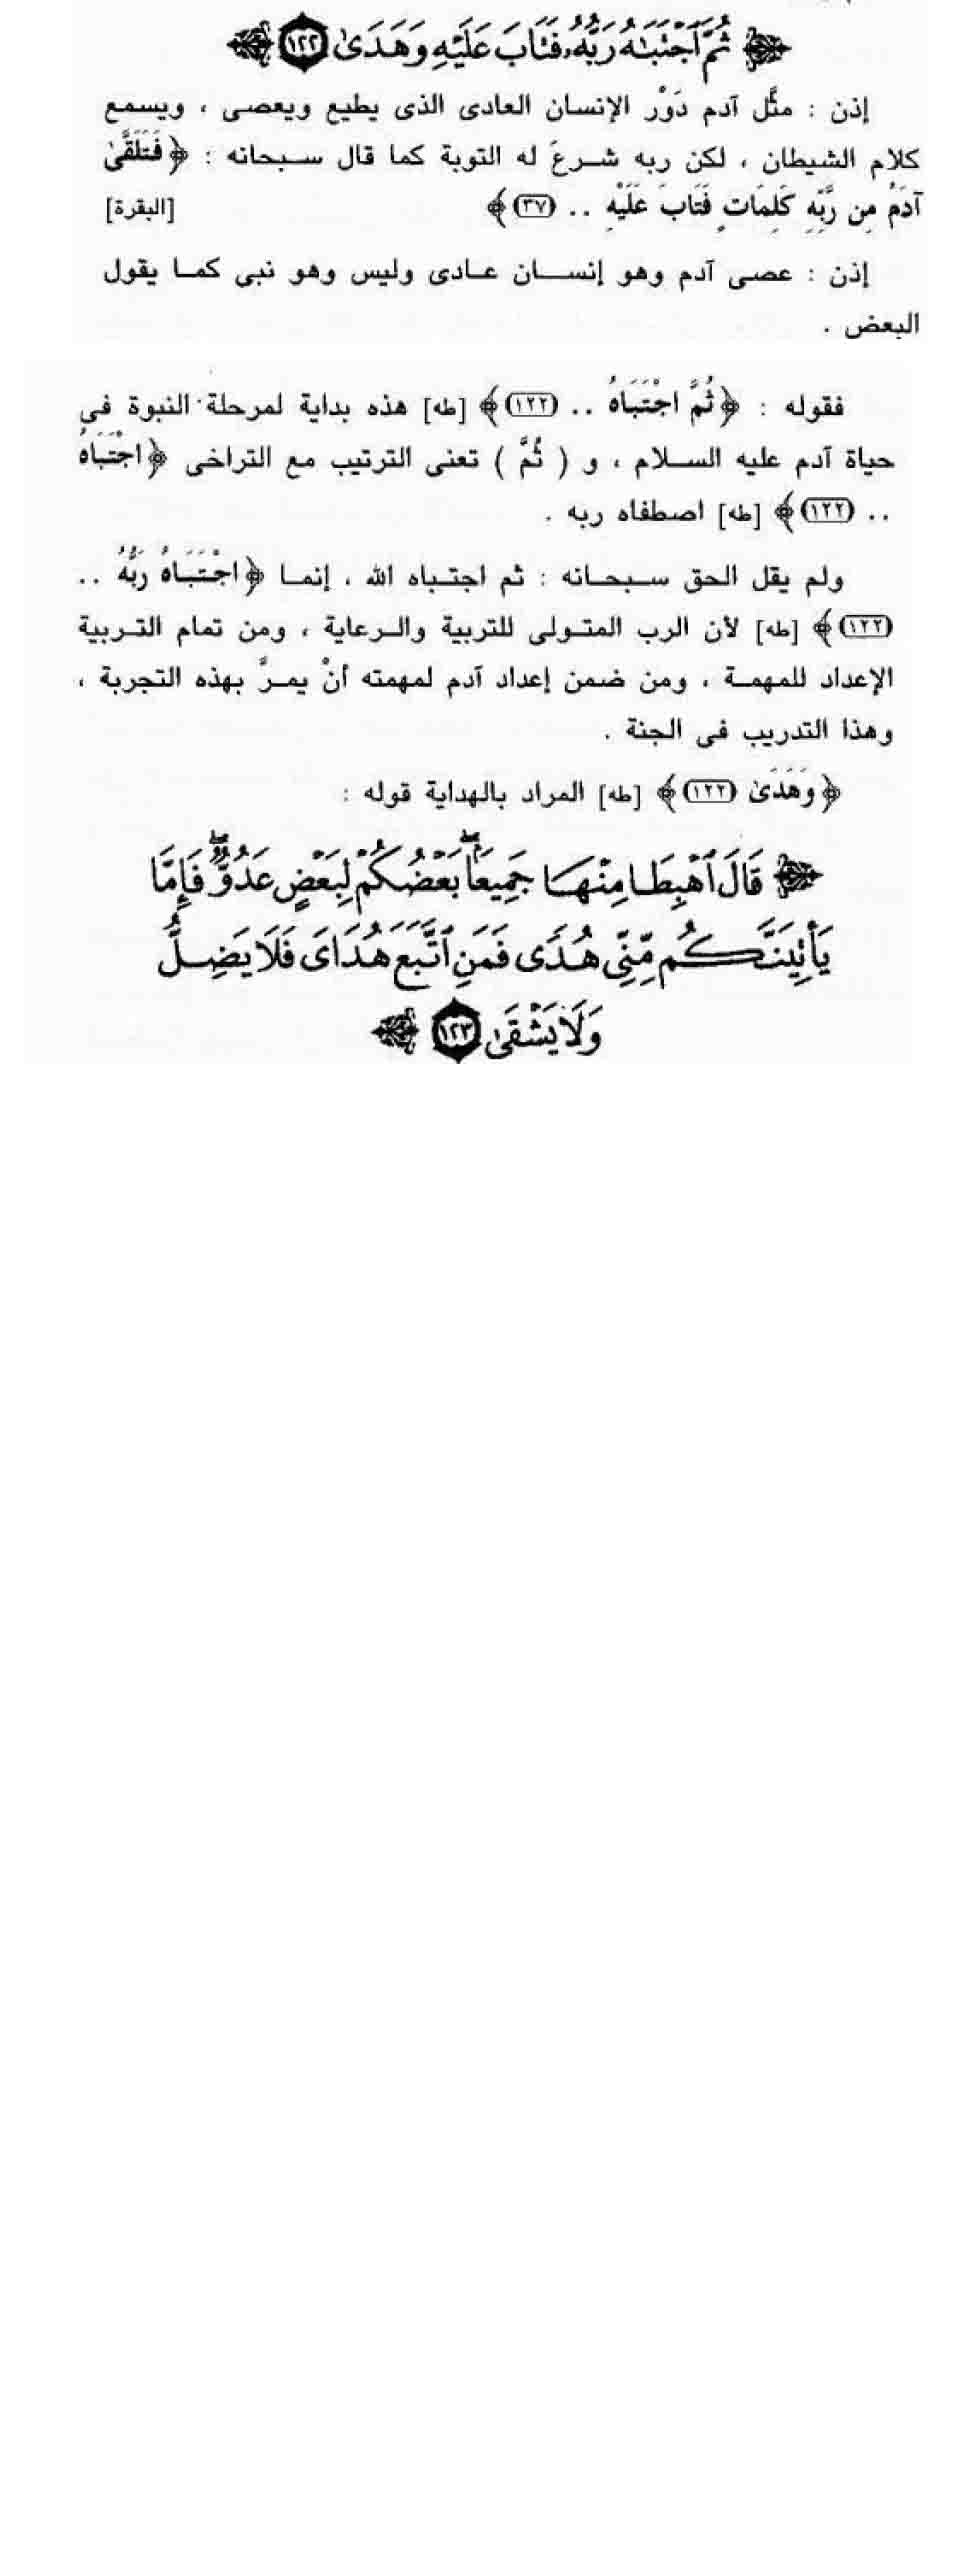 ﴿ ثُمَّ ٱجْتَبَٰهُ رَبُّهُۥ فَتَابَ عَلَيْهِ وَهَدَىٰ ١٢٢ ﴾
إذن : مثَّل آدم دَوْر الإنسان العادى الذى يطيع ويعصى ، ويسمع
كلام الشيطان ، لكن ربه شرعَ له التوبة كما قال سبحانه : ﴿ فَتَلَقَّىٰ
آدَمُ مِن رَّبِّهِ كَلِمَاتٍ فَتَابَ عَلَيْهِ .. (٣٧) ﴾ [البقرة]
إذن : عصى آدم وهو إنسان عادى وليس وهو نبى كما يقول
البعض .
فقوله : ﴿ ثُمَّ اجْتَبَاهُ .. (١٢٢) ﴾ [طه] هذه بداية لمرحلة النبوة فى
حياة آدم عليه السلام ، و ( ثُمَّ ) تعنى الترتيب مع التراخى ﴿ اجْتَبَاهُ
.. (١٢٢) ﴾ [طه] اصطفاه ربه .
ولم يقل الحق سبحانه : ثم اجتباه الله ، إنما ﴿ اجْتَبَاهُ رَبُّهُ ..
(١٢٢) ﴾ [طه] لأن الرب المتولى للتربية والرعاية ، ومن تمام التربية
الإعداد للمهمة ، ومن ضمن إعداد آدم لمهمته أنْ يمرَّ بهذه التجربة ،
وهذا التدريب فى الجنة .
﴿ وَهَدَىٰ (١٢٢) ﴾ [طه] المراد بالهداية قوله :
﴿ قَالَ ٱهْبِطَا مِنْهَا جَمِيعًۢا ۖ بَعْضُكُمْ لِبَعْضٍ عَدُوٌّ ۖ فَإِمَّا
يَأْتِيَنَّكُم مِّنِّى هُدًى فَمَنِ ٱتَّبَعَ هُدَاىَ فَلَا يَضِلُّ
وَلَا يَشْقَىٰ ١٢٣ ﴾